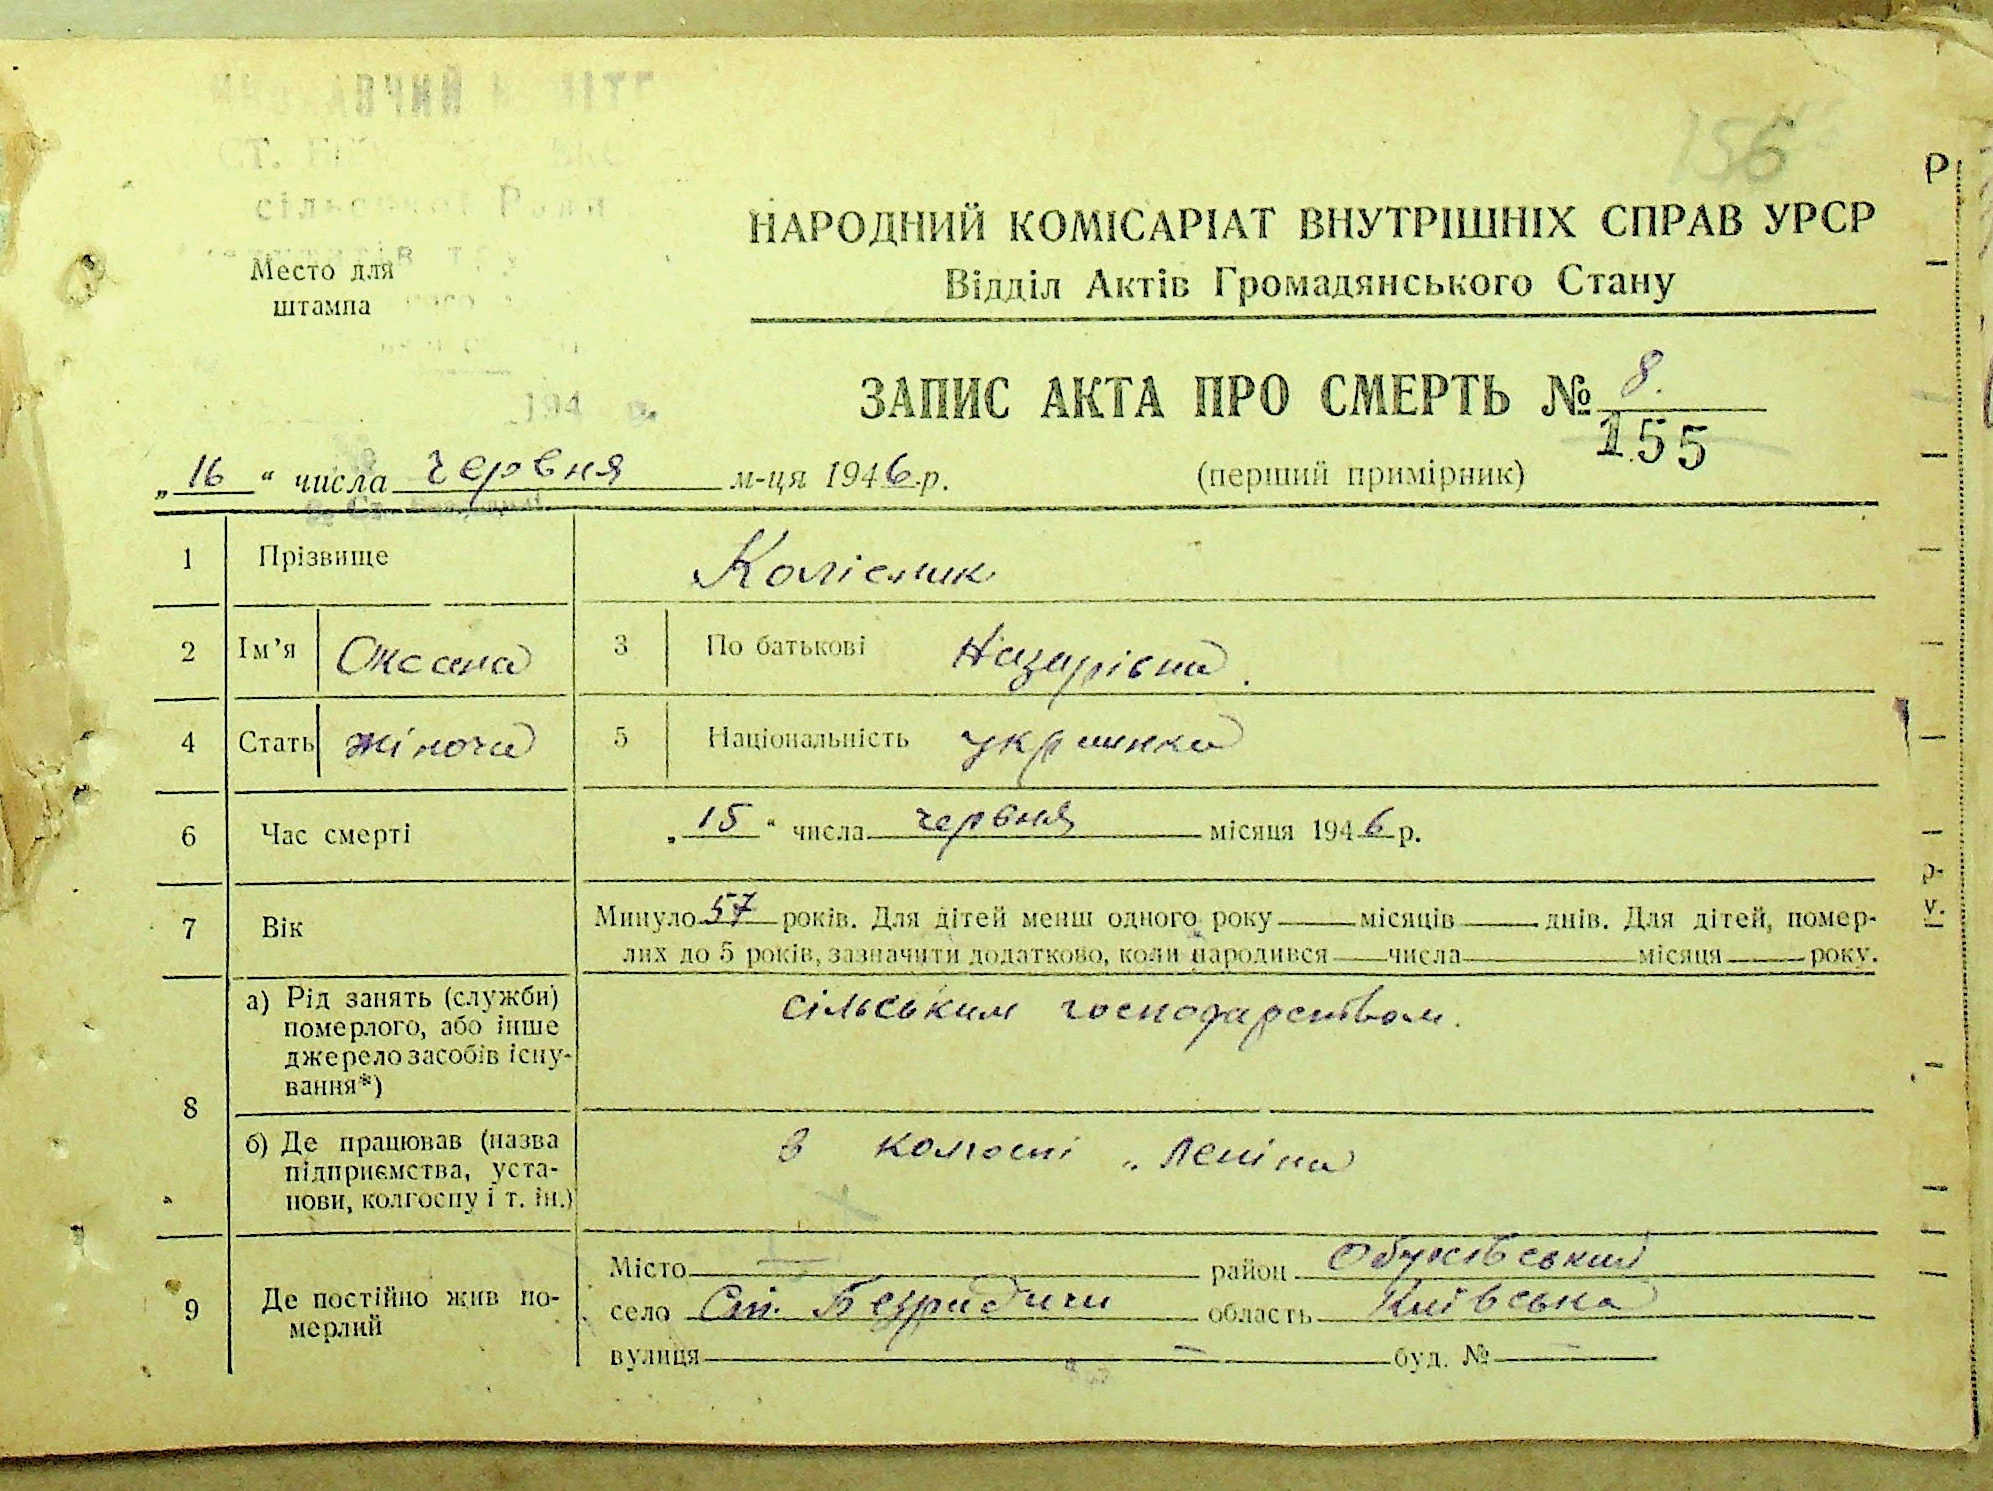 156
НАРОДНИЙ КОМІСАРІАТ ВНУТРІШНІХ СПРАВ УРСР
Відділ Актів Громадянського Стану
сільської Ради
Место для
штампа
194 р.
ЗАПИС АКТА ПРО СМЕРТЬ № 8.
155
„16“ числа червня м-ця 1946 р.
(перший примірник)
1 Прізвище Колісник
2 Ім’я Оксана 3 По батькові Назарівна.
4 Стать жіноча 5 Національність українка
6 Час смерті „15“ числа червня місяця 1946 р.
7 Вік Минуло 57 років. Для дітей менш одного року місяців днів. Для дітей, помер-
лих до 5 років, зазначити додатково, коли народився числа місяця року.
8 а) Рід занять (служби) сільським господарством.
померлого, або інше
джерело засобів існу-
вання*)
б) Де працював (назва в колгоспі „Леніна
підприємства, уста-
нови, колгоспу і т. ін.)
9 Де постійно жив по-
мерлий
Місто — район Обухівський
село Ст. Безрадичи область Київська
вулиця — буд. № —